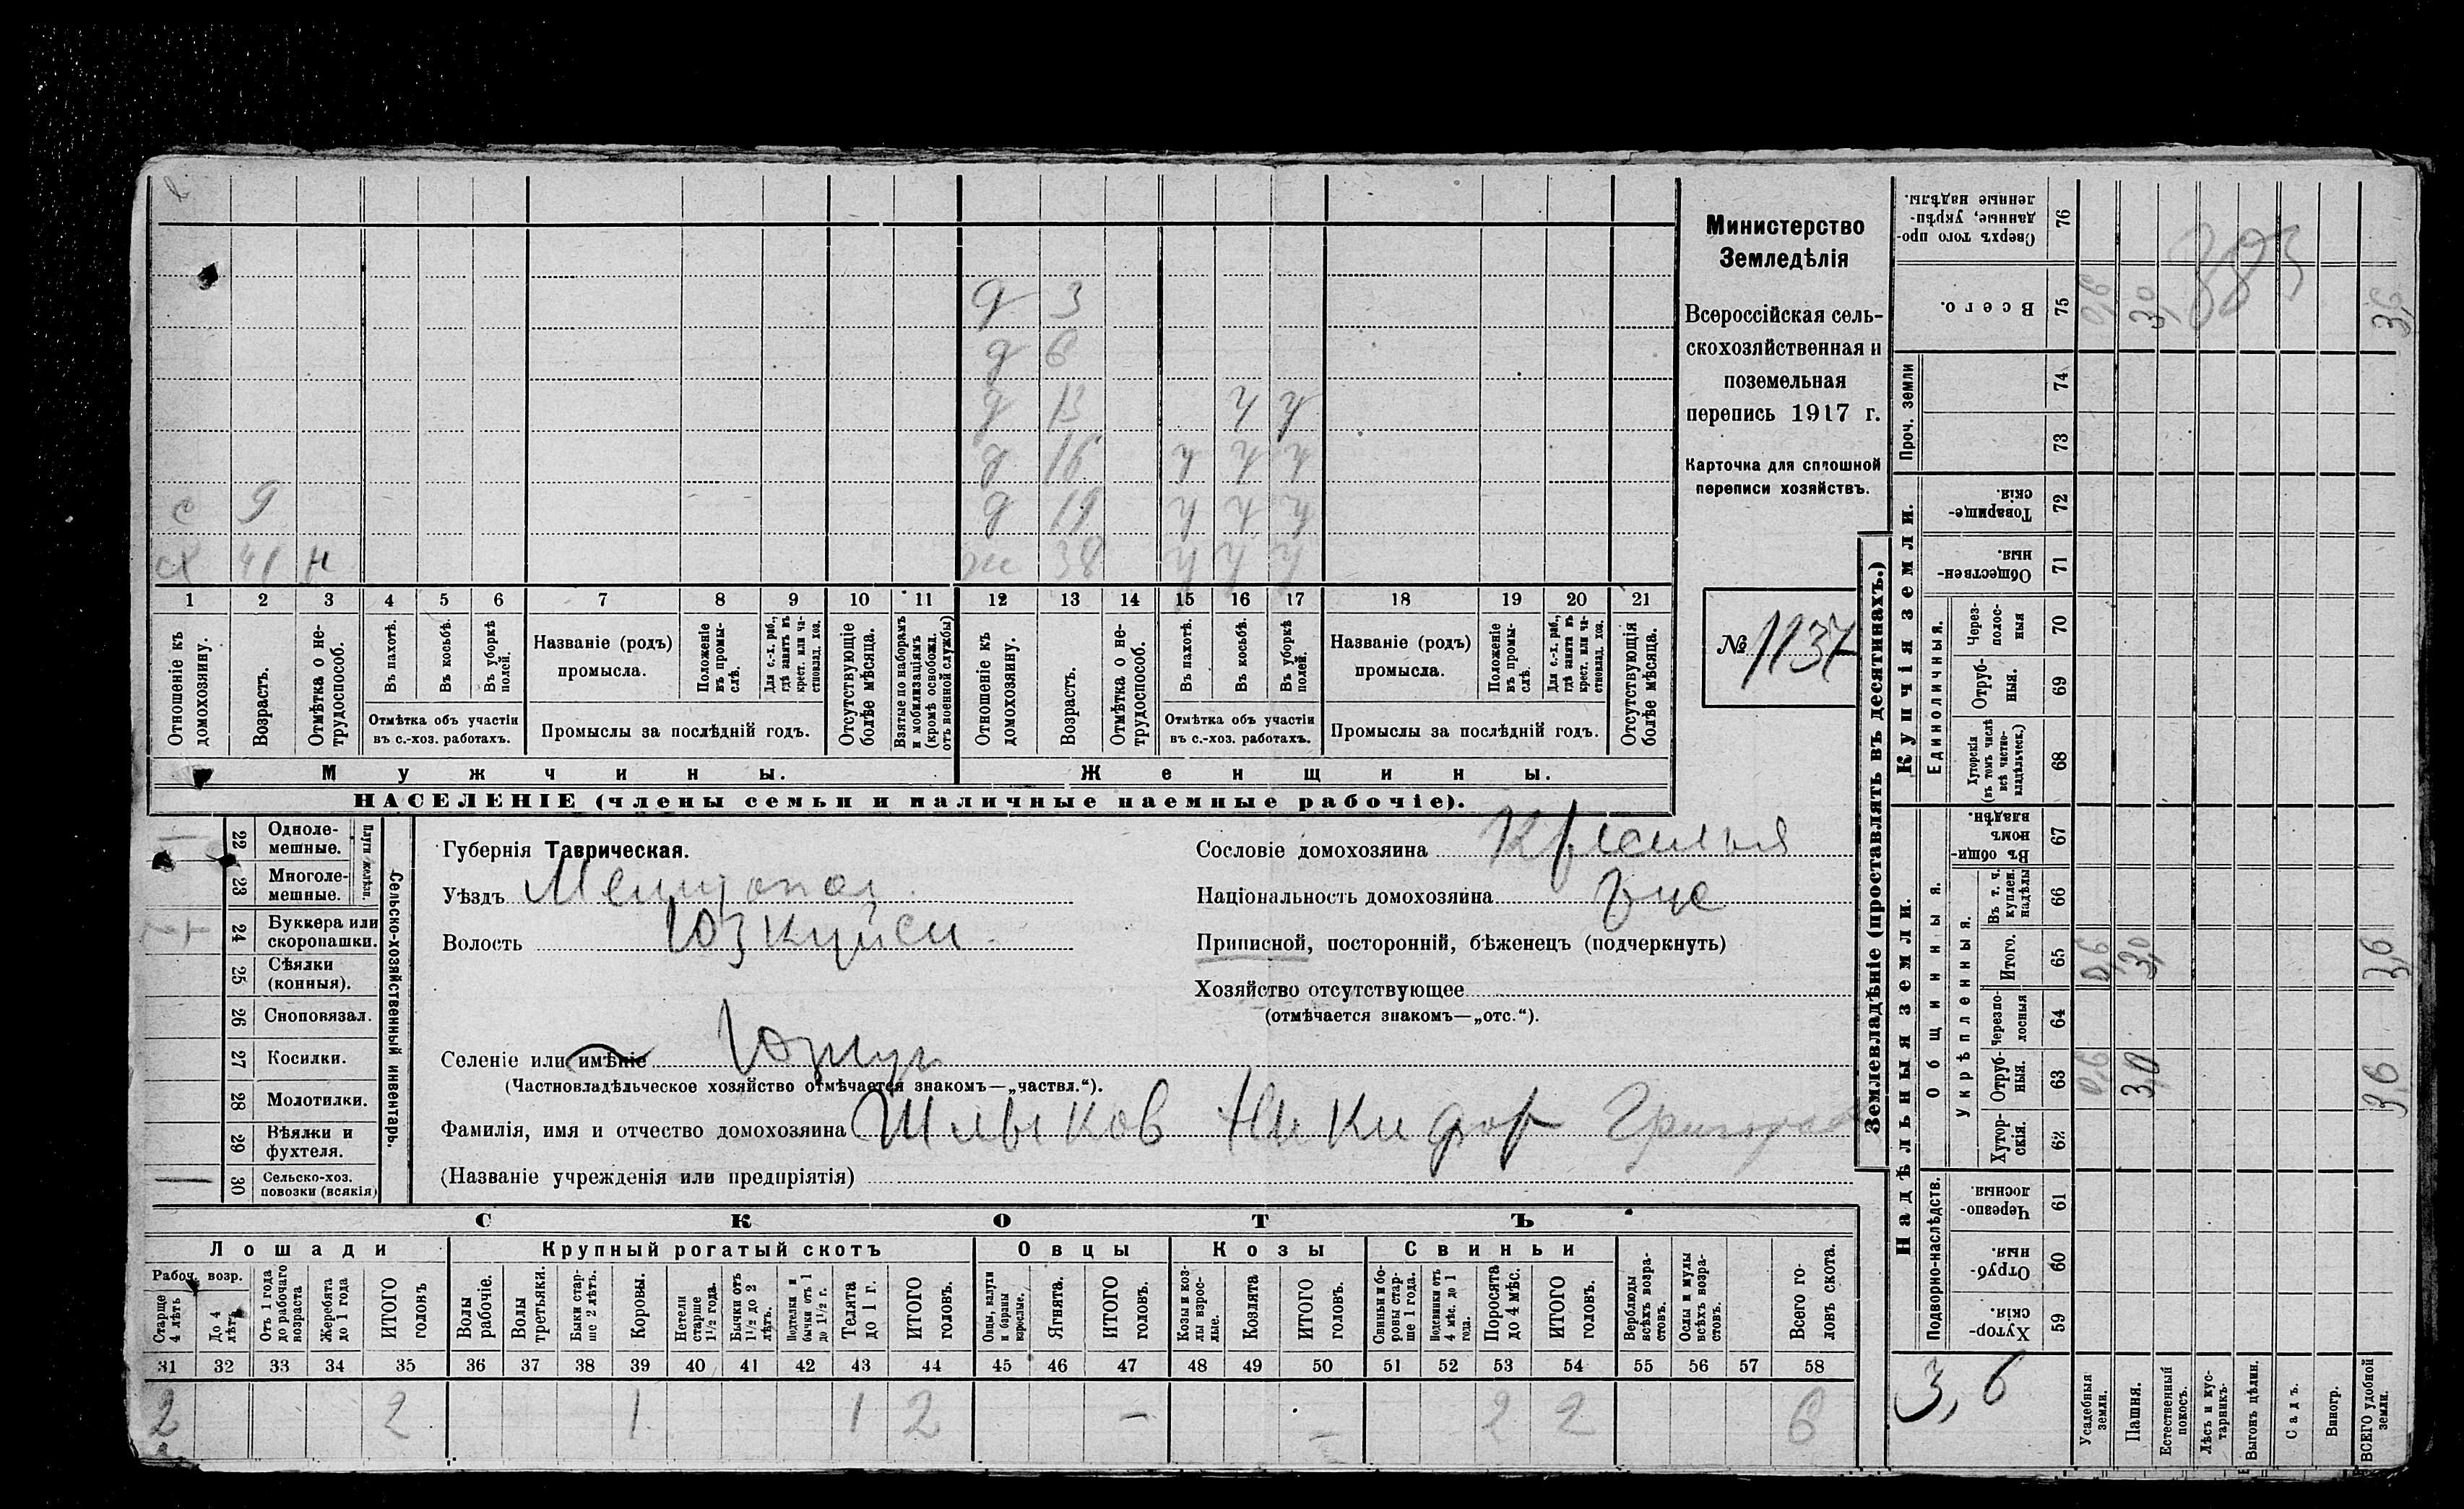 д 3
д 6
д 13 ч ч
д 16 ч ч ч
с 9 д 19 ч ч ч
сх 41 н ж 38 ч ч ч
1 2 3 4 5 6 7 8 9 10 11 12 13 14 15 16 17 18 19 20 21
Отношеніе къ домохозяину.
Возрастъ.
Отмѣтка о нетрудоспособ.
Въ пахотѣ.
Въ косьбѣ.
Въ уборкѣ полей.
Отмѣтка объ участіи
въ с.-хоз. работахъ.
Названіе (родъ)
промысла.
Положеніе въ промыслѣ.
Для с.-х. раб., гдѣ занятъ въ крест. или частновлад. хоз.
Промыслы за послѣдній годъ.
Отсутствующіе болѣе мѣсяца.
Взятые по наборамъ и мобилизаціямъ (кромѣ освобожд. отъ военной службы)
Отношеніе къ домохозяину.
Возрастъ.
Отмѣтка о нетрудоспособ.
Въ пахотѣ.
Въ косьбѣ.
Въ уборкѣ полей.
Отмѣтка объ участіи
въ с.-хоз. работахъ.
Названіе (родъ)
промысла.
Положеніе въ промыслѣ.
Для с.-х. раб., гдѣ занятъ въ крест. или частновлад. хоз.
Промыслы за послѣдній годъ.
Отсутствующія болѣе мѣсяца.
Мужчины. Женщины.
НАСЕЛЕНІЕ (члены семьи и наличные наемные рабочіе).
Министерство
Земледѣлія
Всероссійская сель-
скохозяйственная и
поземельная
перепись 1917 г.
Карточка для сплошной
переписи хозяйствъ.
№ 1137
22 Одноле-
мешные.
23 Многоле-
мешные.
Плуги желѣзн.
24 Буккера или
скоропашки.
25 Сѣялки
(конныя).
26 Сноповязал.
27 Косилки.
28 Молотилки.
29 Вѣялки и
фухтеля.
30 Сельско-хоз.
повозки (всякія)
Сельско-хозяйственный инвентарь.
Губернія Таврическая.
Уѣздъ Мелитопол.
Волость Юзкуйск.
Селеніе или имѣніе Юзкуи
(Частновладѣльческое хозяйство отмѣчается знакомъ—„частвл.“).
Фамилія, имя и отчество домохозяина Шлыков Никифор Григорьев
(Названіе учрежденія или предпріятія)
Сословіе домохозяина Крестья
Національность домохозяина рус
Приписной, посторонній, бѣженецъ (подчеркнуть)
Хозяйство отсутствующее
(отмѣчается знакомъ—„отс.“).
СКОТЪ
Лошади Крупный рогатый скотъ Овцы Козы Свиньи
Рабоч. возр.
Старше 4 лѣтъ
До 4 лѣтъ
Отъ 1 года до рабочаго возраста
Жеребята до 1 года
ИТОГО головъ
Волы рабочіе.
Волы третьяки.
Быки старше 2 лѣтъ.
Коровы.
Нетели старше 1½ года.
Бычки отъ 1½ до 2 лѣтъ.
Подтелки и бычки отъ 1 до 1½ г.
Телята до 1 г.
ИТОГО головъ.
Овцы, валухи и бараны взрослые.
Ягнята.
ИТОГО головъ.
Козы и козлы взрослые.
Козлята
ИТОГО головъ.
Свиньи и боровы старше 1 года.
Подсвинки отъ 4 мѣс. до 1 года.
Поросята до 4 мѣс.
ИТОГО головъ.
Верблюды всѣхъ возрастовъ.
Ослы и мулы всѣхъ возрастовъ.
Всего головъ скота.
31 32 33 34 35 36 37 38 39 40 41 42 43 44 45 46 47 48 49 50 51 52 53 54 55 56 57 58
2 2 1 1 2 – – 2 2 6
Землевладѣніе (проставлять въ десятинахъ.)
Надѣльныя земли. Купчія земли.
Подворно-наслѣдств.
Общинныя.
Укрѣпленныя.
Единоличныя.
Проч. земли
Хуторскія. 59
Отрубныя. 60
Черезполосныя. 61
Хуторскія. 62
Отрубныя. 63 0,6 3,0 3,6
Черезполосныя 64
Итого. 65 0,6 3,0 3,6
Въ т. ч. куплен. надѣлы 66
Въ общинномъ владѣн. 67
Хуторскія (въ томъ числѣ всѣ частновладѣльческ.) 68
Отрубныя. 69
Черезполосныя 70
Общественныя. 71
Товарищескія. 72
73
74
Всего. 75 0,6 3,0 3,6
Сверхъ того проданные, укрѣпленные надѣлы. 76
3,6
Усадебныя земли.
Пашня.
Естественный покосъ.
Лѣсъ и кустарникъ.
Выгонъ цѣлин.
Садъ.
Виногр.
ВСЕГО удобной земли.